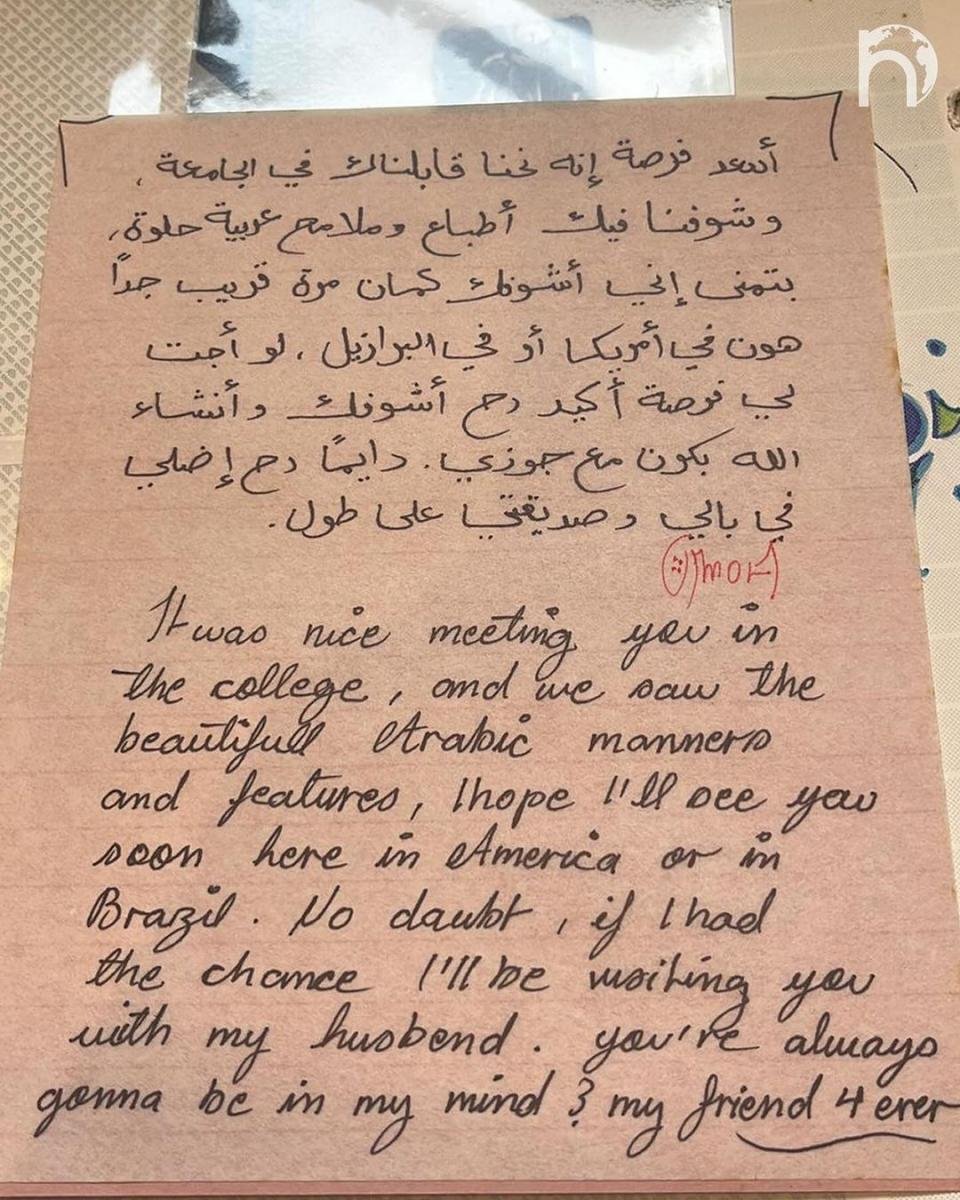 أسعد فرصة إنه نحنا قابلناك في الجامعة ,
وشوفنا فيك أطباع وملامح عربية حلوة,
بتمنى إني أشوفك كمان مرة قريب جداً
هون في أمريكا أو في البرازيل , لو أجت
لي فرصة أكيد رح أشوفك وأنشاء
الله بكون مع جوزي. دايماً رح إضلي
في بالي وصديقتي على طول.
It was nice meeting you in
the college, and we saw the
beautifull Arabic manners
and features, I hope I'll see you
soon here in America or in
Brazil. No daubt, if I had
the chance I'll be visiting you
with my husbend. you're always
gonna be in my mind & my friend 4 ever